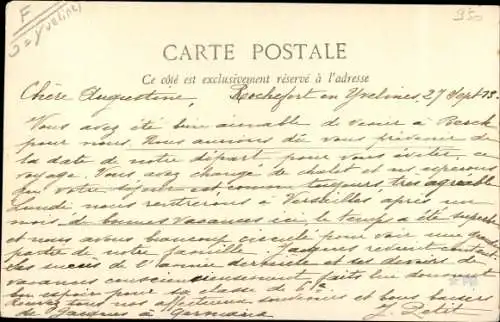 F
= Yvelines
950
CARTE POSTALE
Ce côté est exclusivement réservé à l'adresse
Chère Augustine, Rochefort en Yvelines, 27 Sept 13
Vous avez été bien aimable de venir à Berck
pour nous. Nous aurions dû vous prévenir de
la date de notre départ pour vous éviter ce
voyage. Vous avez changé de chalet et ns espérons
que votre séjour est comme toujours très agréable
Lundi nous rentrerons à Versailles après un
mois de bonnes vacances ici le temps a été superbe
et nous avons beaucoup circulé pour voir une grande
partie de notre famille. Jacques
des succès de l'année dernière et ses devoirs de
vacances consciencieusement faits lui donnent
bon espoir pour sa classe de 6e
tous nos affectueux souvenirs et bons baisers
de Jacques à Germaine J. Petit